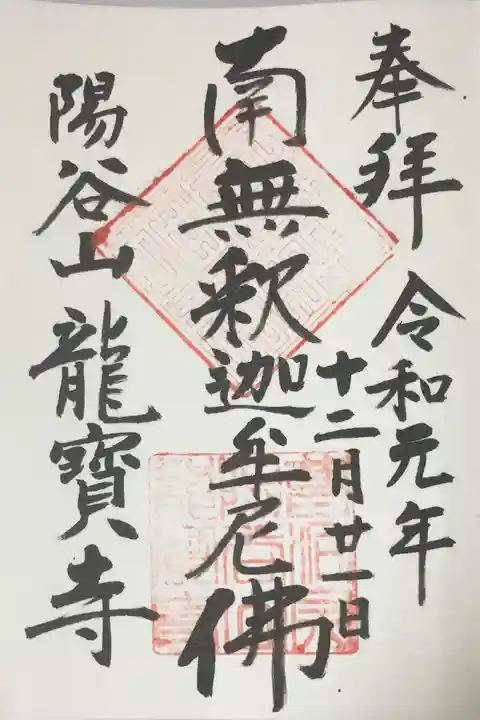 奉拝 令和元年
十二月廿一日
南無釈迦牟尼佛
陽谷山 龍寳寺